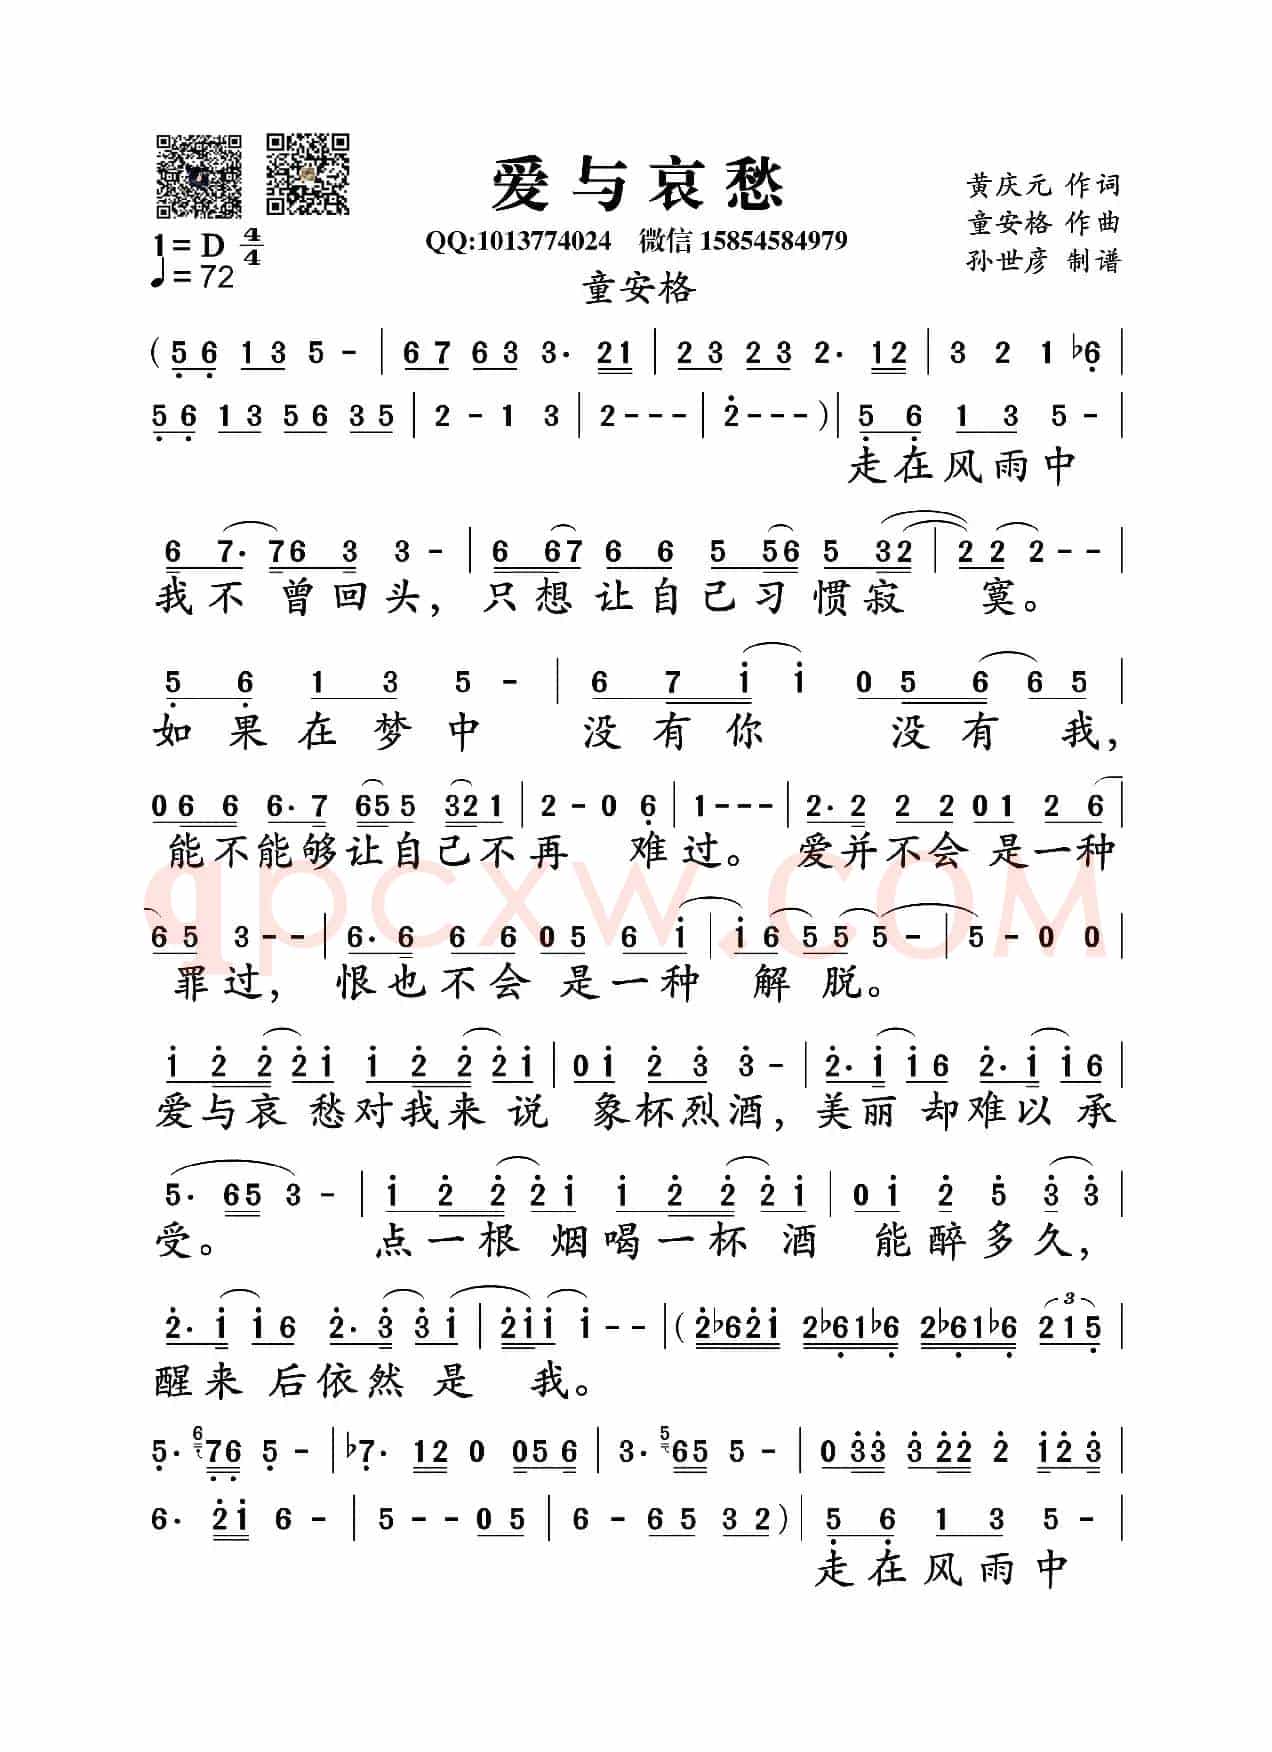 爱与哀愁
黄庆元 作词
1=D 4/4
QQ:1013774024 微信 15854584979
童安格 作曲
♩=72
童安格
孙世彦 制谱
( 5̣ 6̣ 1 3 5 - | 6 7 6 3 3. 2 1 | 2 3 2 3 2. 1 2 | 3 2 1 ♭6̣ |
5̣ 6̣ 1 3 5 6 3 5 | 2 - 1 3 | 2 - - - | 2̇ - - - ) | 5̣ 6̣ 1 3 5 - |
走在风雨中
6 7. 7 6 3 3 - | 6 6 7 6 6 5 5 6 5 3 2 | 2 2 2 - - |
我不 曾回头，只想让自己习惯寂 寞。
5̣ 6̣ 1 3 5 - | 6 7 1̇ 1̇ 0 5 6 6 5 |
如果在梦中 没有你 没有 我，
0 6 6 6. 7 6 5 5 3 2 1 | 2 - 0 6̣ | 1 - - - | 2. 2 2 2 0 1 2 6 |
能不能够让自己不再 难过。 爱并不会是一种
6 5 3 - - | 6. 6 6 6 0 5 6 1̇ | 1̇ 6 5 5 5 - | 5 - 0 0 |
罪过， 恨也不会是一种 解 脱。
1̇ 2̇ 2̇ 2̇ 1̇ 1̇ 2̇ 2̇ 2̇ 1̇ | 0 1̇ 2̇ 3̇ 3̇ - | 2̇. 1̇ 1̇ 6 2̇. 1̇ 1̇ 6 |
爱与哀 愁对我来 说 象杯烈酒，美丽 却难以 承
5. 6 5 3 - | 1̇ 2̇ 2̇ 2̇ 1̇ 1̇ 2̇ 2̇ 2̇ 1̇ | 0 1̇ 2̇ 5̇ 3̇ 3̇ |
受。 点一根 烟喝一杯 酒 能醉多久，
2̇. 1̇ 1̇ 6 2̇. 3̇ 3̇ 1̇ | 2̇ 1̇ 1̇ 1̇ - - | ( 2̇ ♭6 2̇ 1̇ 2 ♭6̣ 1 ♭6̣ 2̇ ♭6̣ 1 ♭6̣ 3 2 1 5̣ |
醒来 后依然 是 我。
5̣. 6 7̣ 6̣ 5̣ - | ♭7̣. 1 2 0 0 5 6 | 3. 5 6 5 5 - | 0 3̇ 3̇ 3̇ 2̇ 2̇ 2̇ 1̇ 2̇ 3̇ |
6. 2̇ 1̇ 6 - | 5 - - 0 5 | 6 - 6 5 3 2 ) | 5̣ 6̣ 1 3 5 - |
走在风雨中
qpcxw.COM